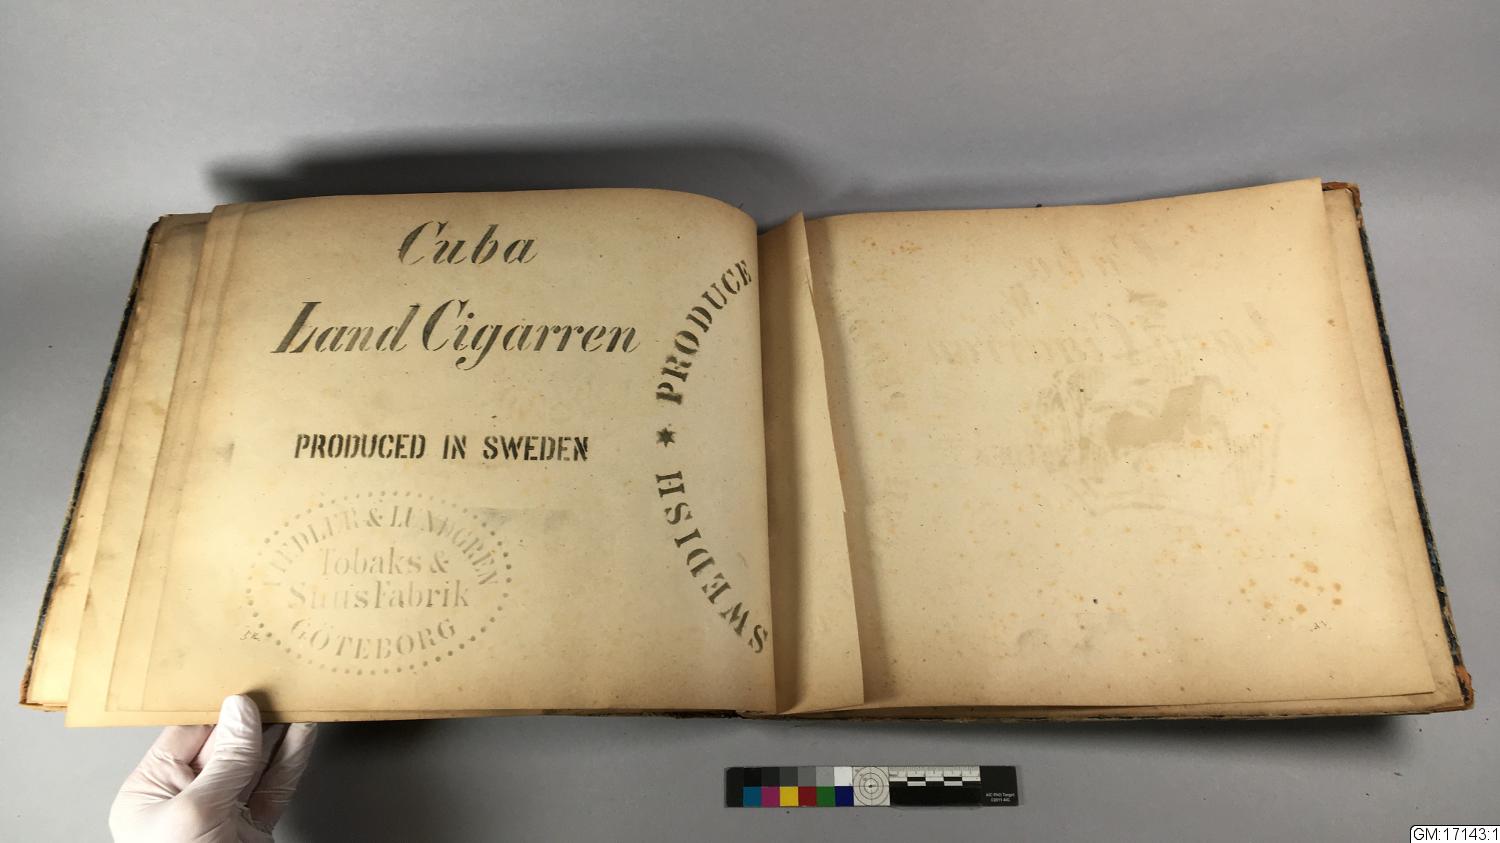 Cuba
Land Cigarren
PRODUCED IN SWEDEN
SWEDISH * PRODUCE
FIEDLER & LUNDGREN
Tobaks &
Snus Fabrik
GÖTEBORG
GM:17143:1